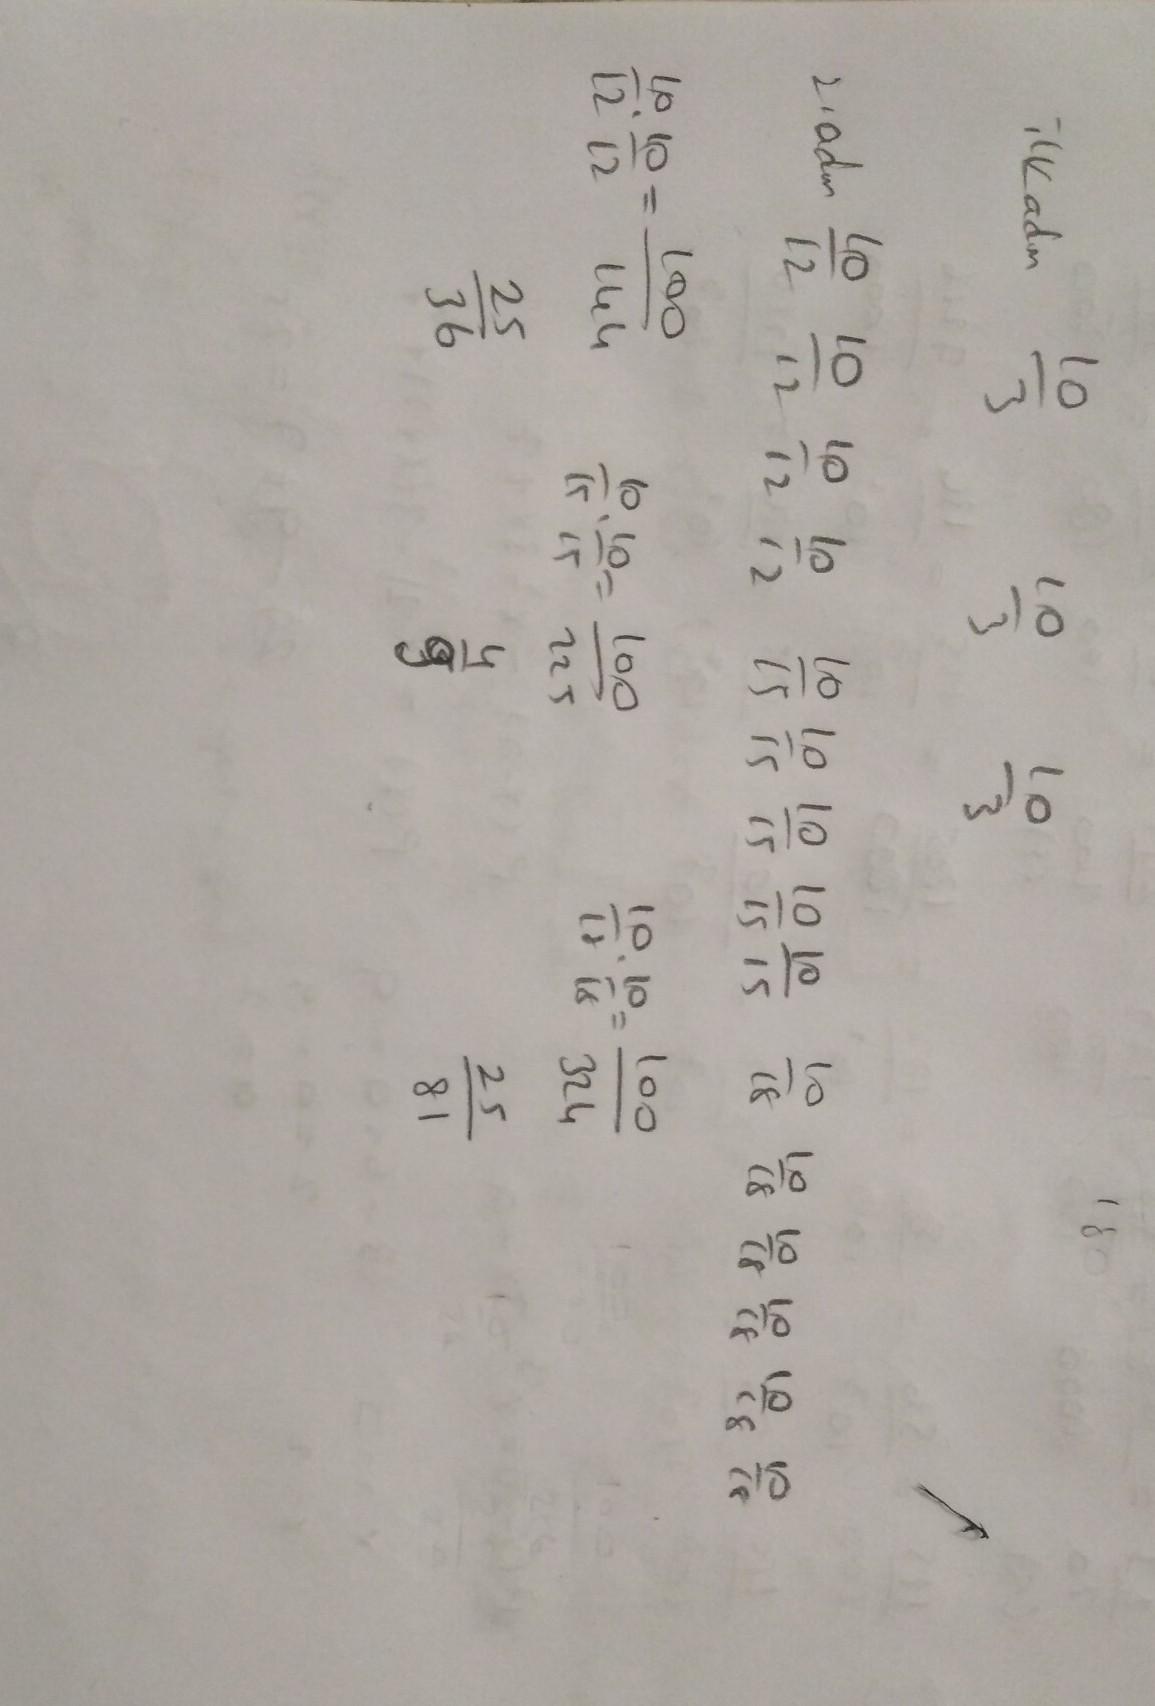 18
ilk adım 10/3 10/3 10/3
2.adım 10/12 10/12 10/12 10/12 10/15 10/15 10/15 10/15 10/15 10/18 10/18 10/18 10/18 10/18 10/18
10/12 . 10/12 = 100/144 10/15 . 10/15 = 100/225 10/18 . 10/18 = 100/324
25/36 4/9 25/81